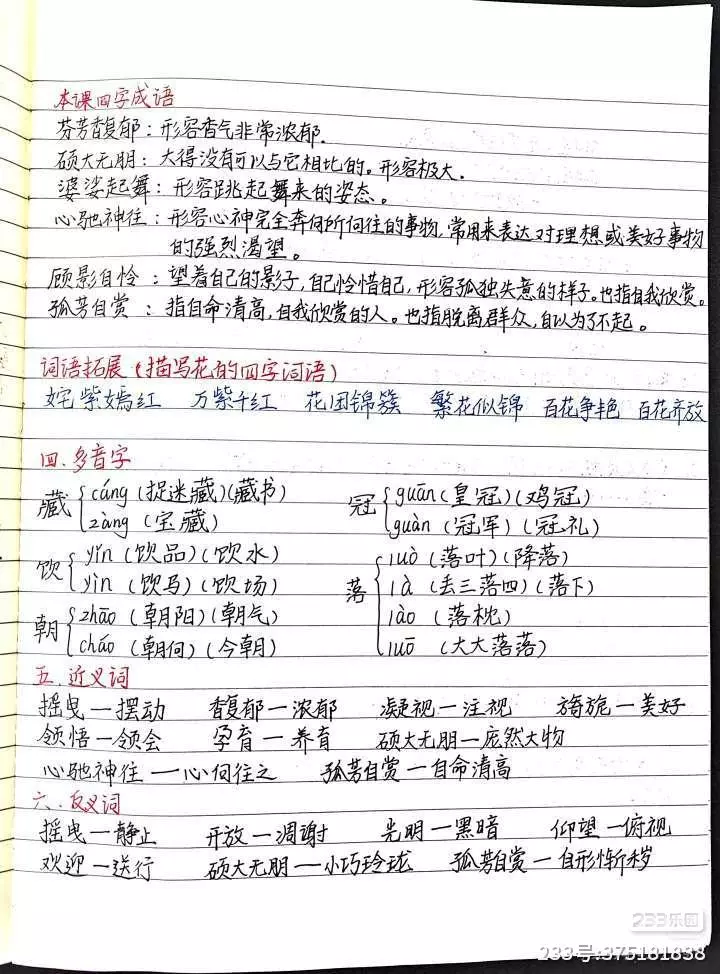 本课四字成语
芬芳馥郁：形容香气非常浓郁.
硕大无朋：大得没有可以与它相比的。形容极大.
婆娑起舞：形容跳起舞来的姿态。
心驰神往：形容心神完全奔向所向往的事物,常用来表达对理想或美好事物
的强烈渴望。
顾影自怜：望着自己的影子,自己怜惜自己,形容孤独失意的样子。也指自我欣赏。
孤芳自赏：指自命清高,自我欣赏的人。也指脱离群众,自以为了不起。
词语拓展(描写花的四字词语)
姹紫嫣红 万紫千红 花团锦簇 繁花似锦 百花争艳 百花齐放
四.多音字
藏 cáng (捉迷藏)(藏书) 冠 guān(皇冠)(鸡冠)
zàng (宝藏) guàn (冠军)(冠礼)
饮 yǐn (饮品)(饮水) 落 luò (落叶)(降落)
yìn (饮马)(饮场) là (丢三落四)(落下)
朝 zhāo (朝阳)(朝气) lào (落枕)
cháo (朝向)(今朝) luō (大大落落)
五.近义词
摇曳—摆动 馥郁—浓郁 凝视—注视 旖旎—美好
领悟—领会 孕育—养育 硕大无朋—庞然大物
心驰神往—心向往之 孤芳自赏—自命清高
六.反义词
摇曳—静止 开放—凋谢 光明—黑暗 仰望—俯视
欢迎—送行 硕大无朋—小巧玲珑 孤芳自赏—自形惭秽
233乐园
233号:375181838